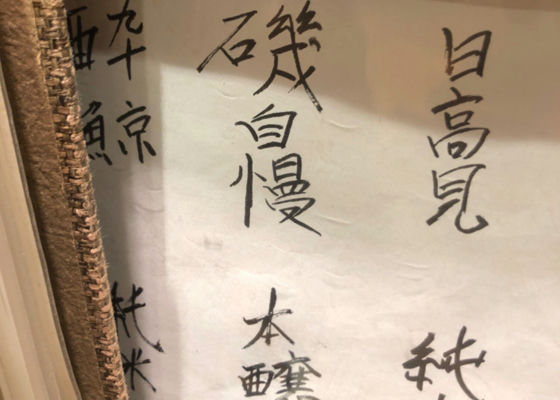 日高見 純
磯自慢 本醸
酔鯨 純米